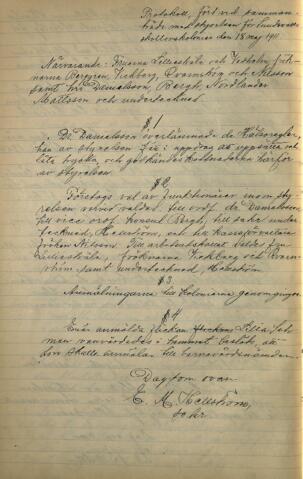 Protokoll, fört vid samman-
träde med styrelsen för Sundsvalls
skollovskolonier den 18 maj 1911.
Närvarande: Fruarna Lilliesköld och Vesthelm, frök-
narna Berggren, Vickberg, Svanskog och Nilsson
samt hrr Danielsson, Bergh, Nordlander
Mattsson och undertecknad.
§ 1
Dr. Danielsson överlämnade de Hälsoregler,
han av styrelsen fått i uppdrag att uppsätta och
låta trycka och godkändes kostnaderna härför
av styrelsen.
§ 2.
Företogs val av funktionärer inom sty-
relsen, varvid valdes till ordf. dr Danielsson,
till vice ordf. Konsul Bergh, till sekr. under-
tecknad, Hellström, och till kassaförvaltare
fröken Nilsson. Till arbetsutskott valdes fru
Lilliesköld, fröknarna Vickberg och
samt undertecknad, Hellström
§ 3.
Anmälningarna till Kolonierna genomgingos.
§ 4
anmälda flickan
man vanvårdades i hemmet beslöts, att
hon skulle anmälas till barnavårdsnämnden.
Dag som ovan
E. M. Hellström,
sekr.